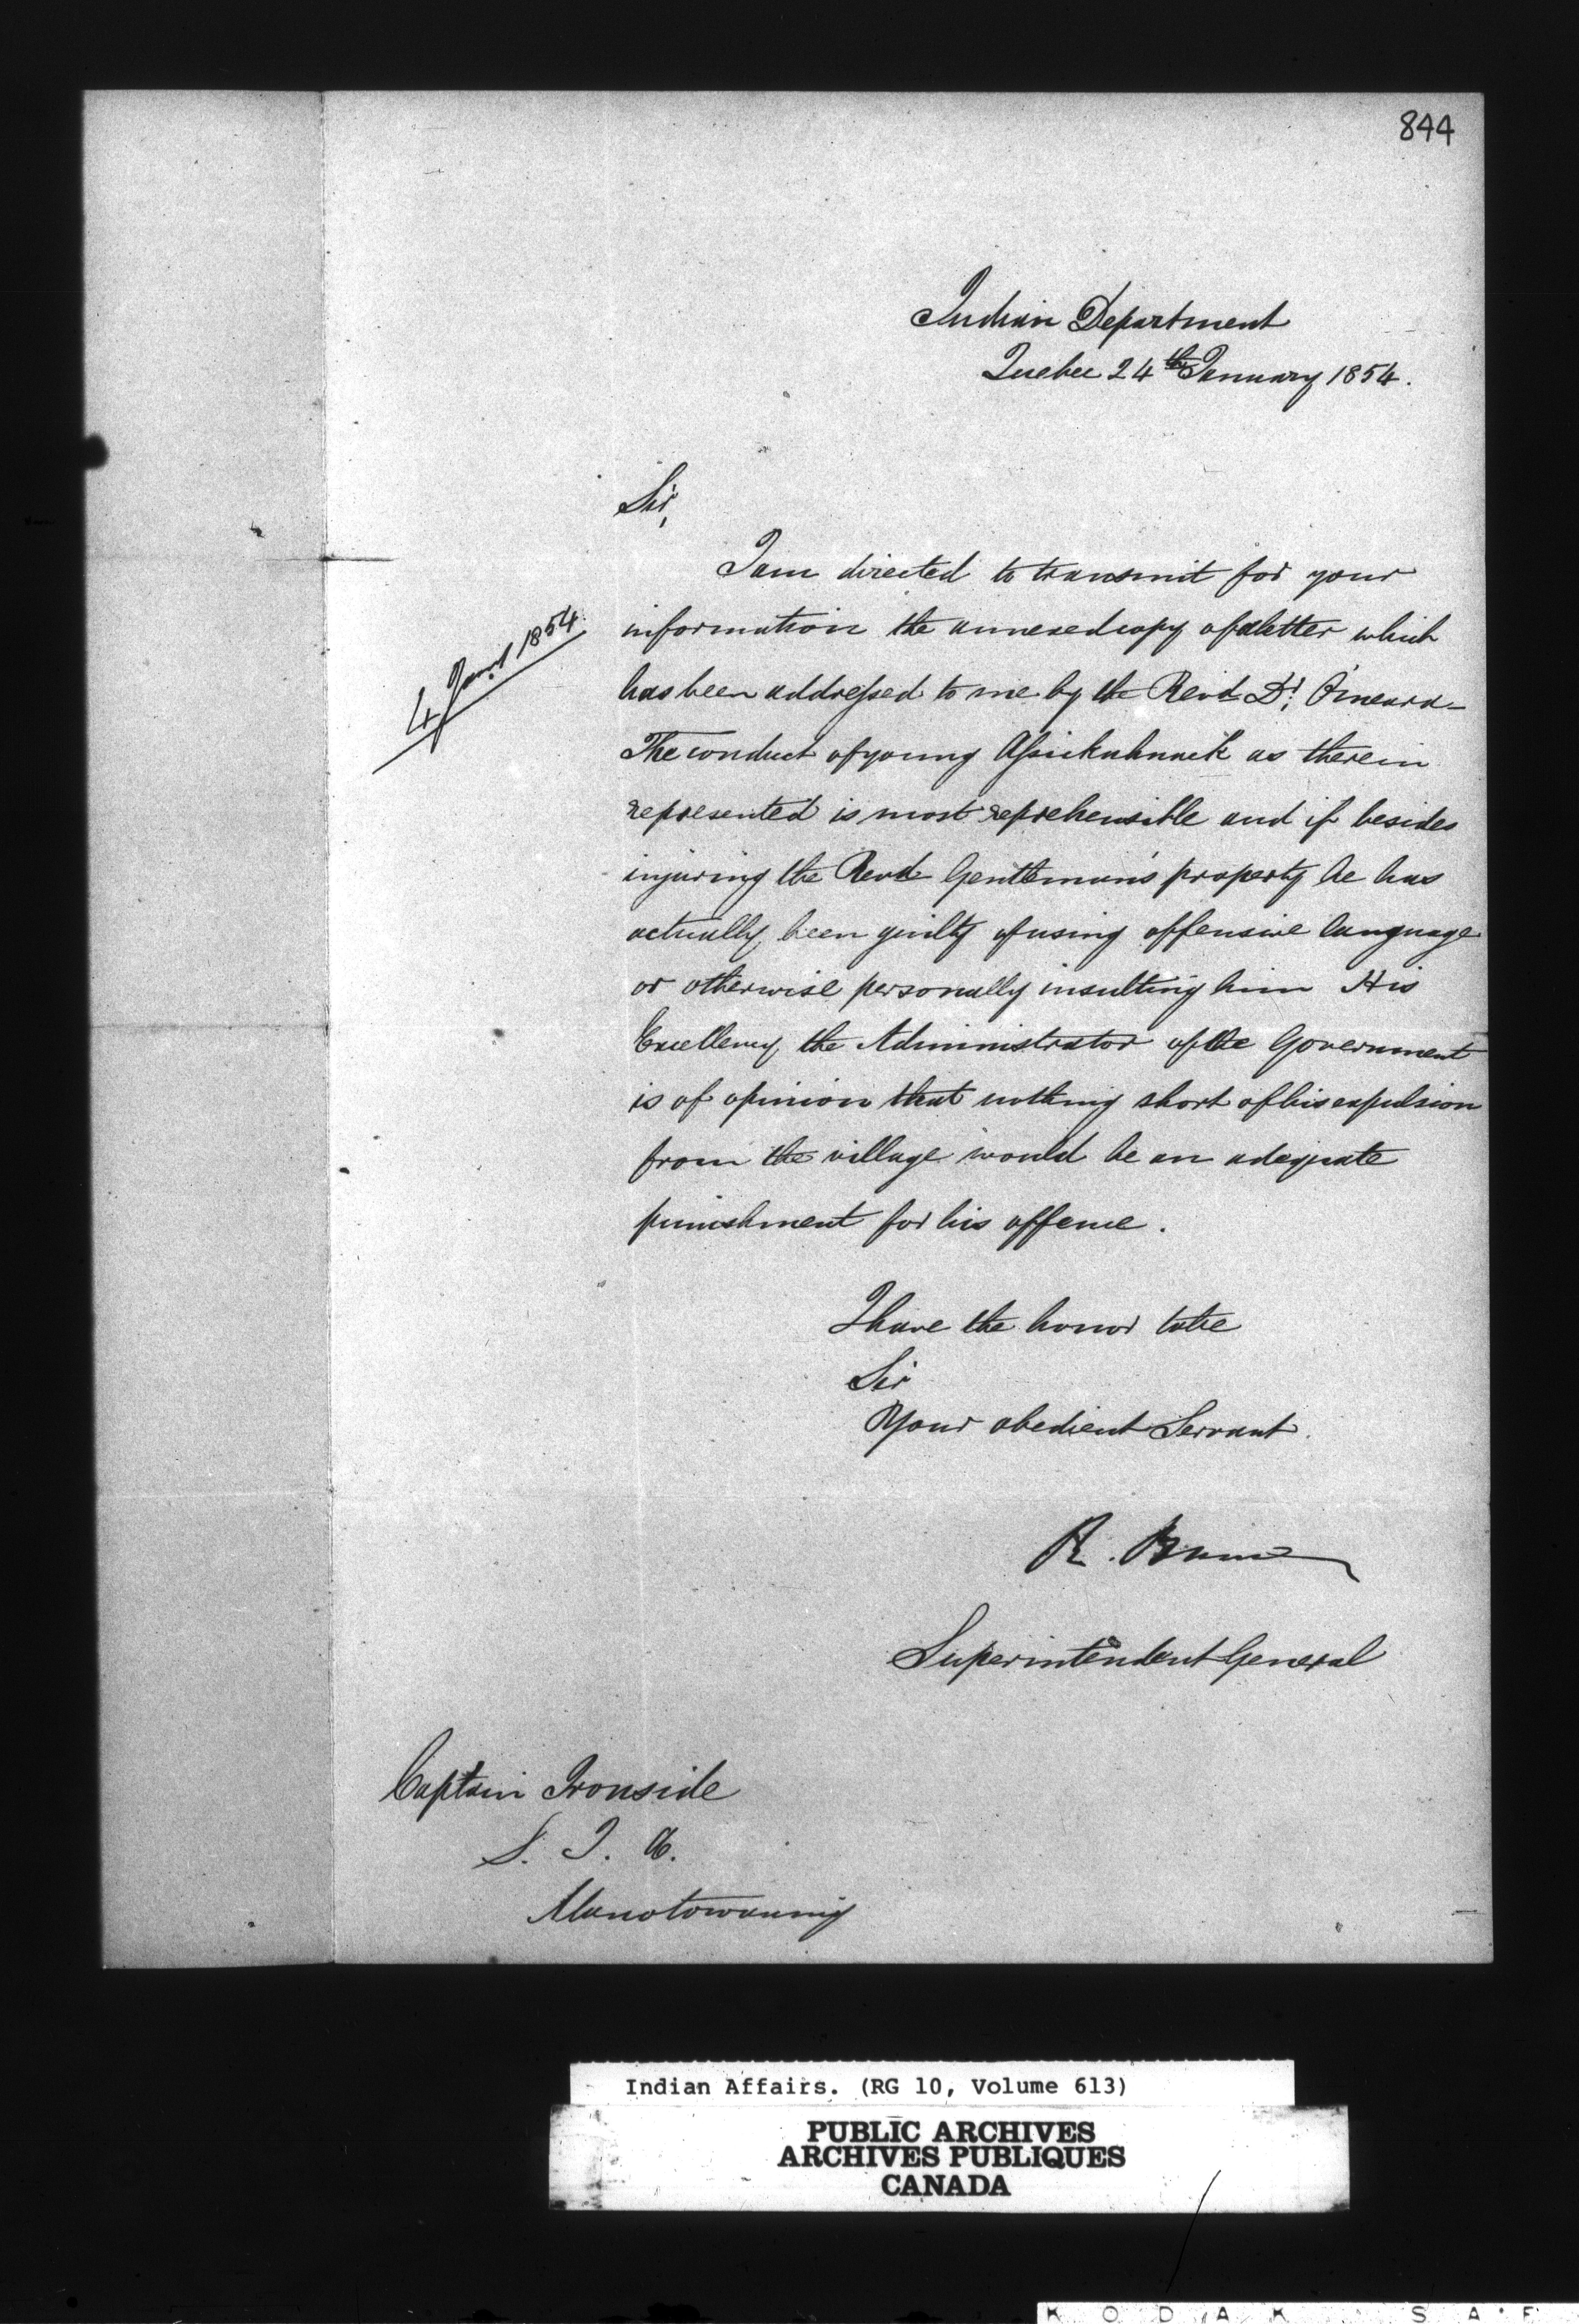 844
Indian Department
Quebec 24th January 1854.
Sir,
I am directed to transmit for your
information the annexed copy of a letter which
4 Jany 1854.
has been addressed to me by the Revd Dr. O'meara_
The conduct of young Assickahnack as therein
represented is most reprehensible and if besides
injuring the Revd Gentleman's property he has
actually been guilty of using offensive language
or otherwise personally insulting him His
Excellency the Administrator of the Government
is of opinion that nothing short of his expulsion
from the village would be an adequate
punishment for his offence.
I have the honor to be
Sir
Your obedient Servant.
R. Bruce
Superintendent General
Captain Ironside
S. I. A.
Manotowaning
Indian Affairs. (RG 10, Volume 613)
PUBLIC ARCHIVES
ARCHIVES PUBLIQUES
CANADA
K O D A K S A F